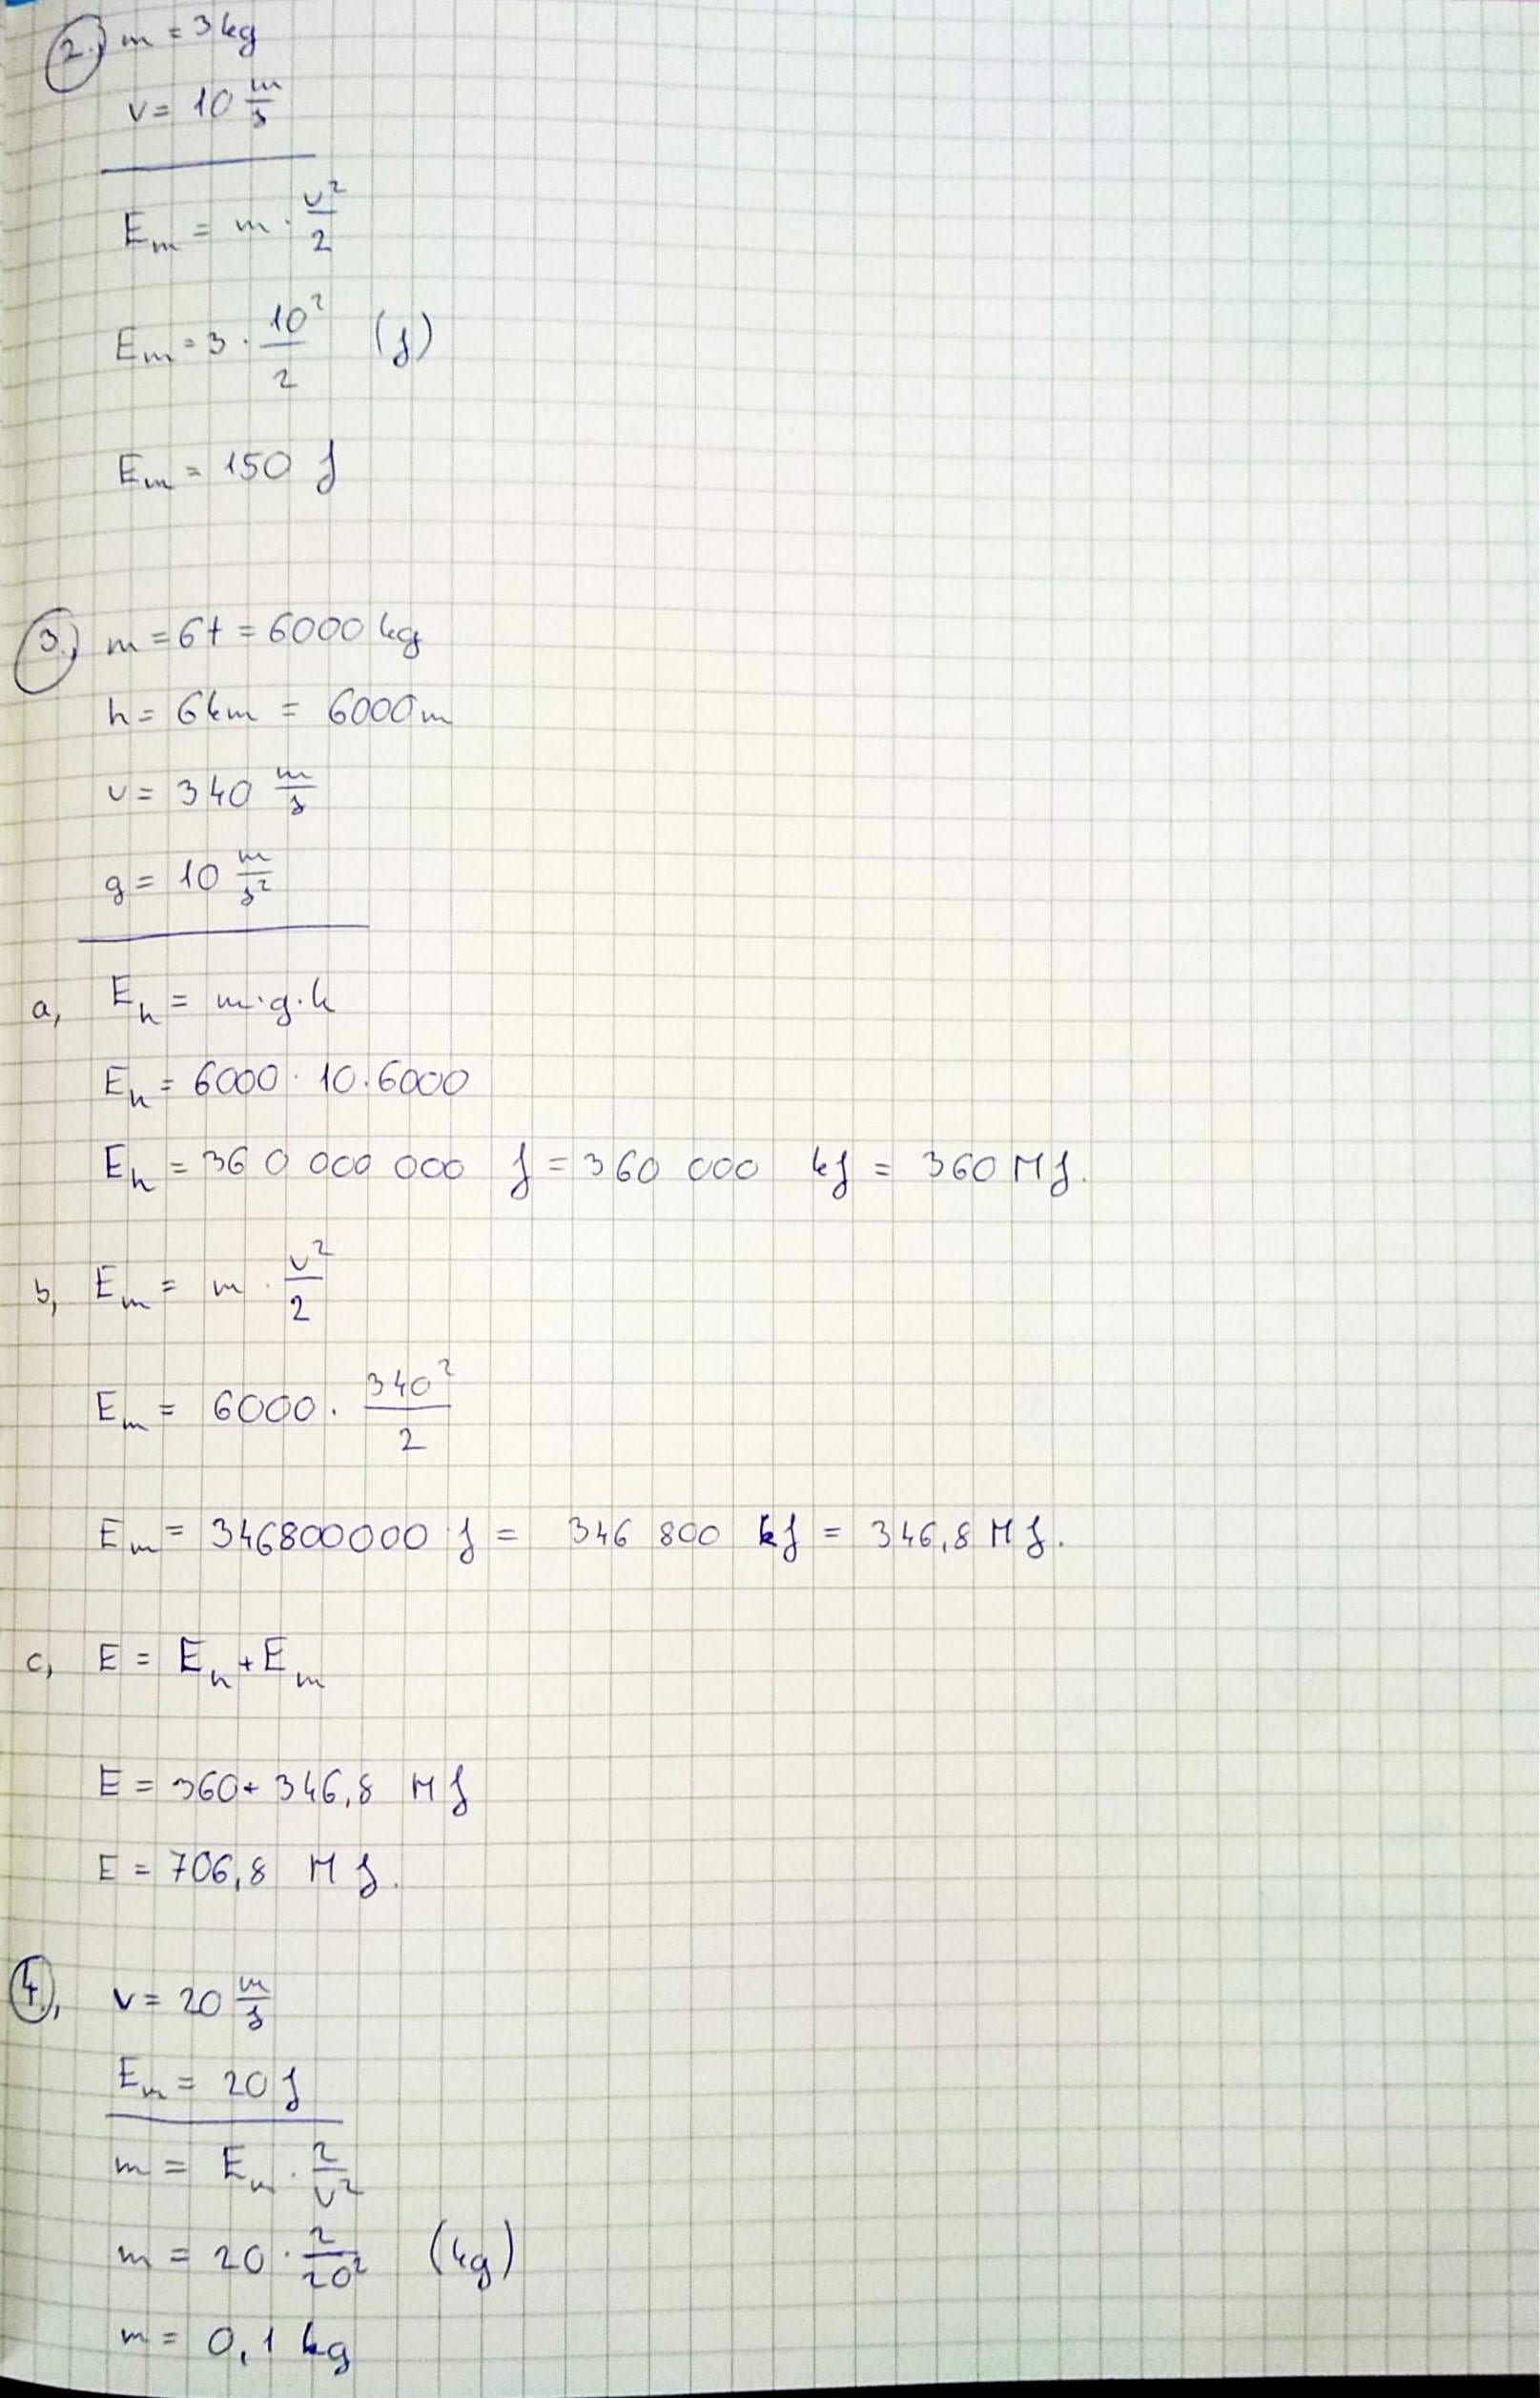 2., m = 3 kg
v = 10 m/s
E_m = m · v²/2
E_m = 3 · 10²/2 (J)
E_m = 150 J
3., m = 6t = 6000 kg
h = 6km = 6000m
v = 340 m/s
g = 10 m/s²
a, E_h = m·g·h
E_h = 6000 · 10 · 6000
E_h = 360 000 000 J = 360 000 kJ = 360 MJ.
b, E_m = m · v²/2
E_m = 6000 · 340²/2
E_m = 346800000 J = 346 800 kJ = 346,8 MJ.
c, E = E_h + E_m
E = 360 + 346,8 MJ
E = 706,8 MJ.
4., v = 20 m/s
E_m = 20 J
m = E_m · 2/v²
m = 20 · 2/20² (kg)
m = 0,1 kg